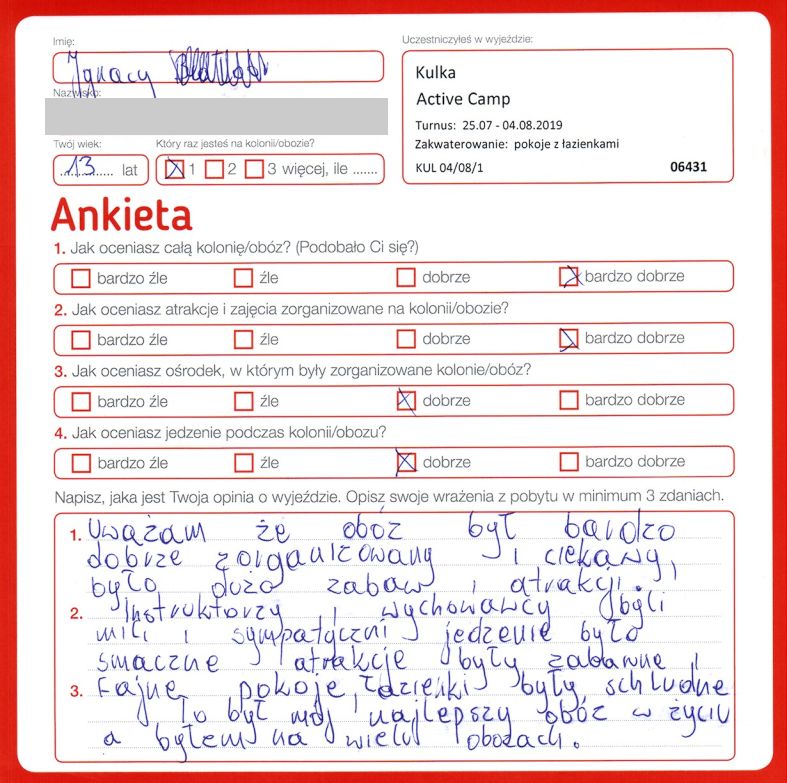 Imię:
Ignacy
Nazwisko:
Twój wiek:
13 lat
Który raz jesteś na kolonii/obozie?
1 2 3 więcej, ile .......
Uczestniczyłeś w wyjeździe:
Kulka
Active Camp
Turnus: 25.07 - 04.08.2019
Zakwaterowanie: pokoje z łazienkami
KUL 04/08/1 06431
Ankieta
1. Jak oceniasz całą kolonię/obóz? (Podobało Ci się?)
bardzo źle źle dobrze bardzo dobrze
2. Jak oceniasz atrakcje i zajęcia zorganizowane na kolonii/obozie?
bardzo źle źle dobrze bardzo dobrze
3. Jak oceniasz ośrodek, w którym były zorganizowane kolonie/obóz?
bardzo źle źle dobrze bardzo dobrze
4. Jak oceniasz jedzenie podczas kolonii/obozu?
bardzo źle źle dobrze bardzo dobrze
Napisz, jaka jest Twoja opinia o wyjeździe. Opisz swoje wrażenia z pobytu w minimum 3 zdaniach.
1. Uważam że obóz był bardzo
dobrze zorganizowany i ciekawy,
było dużo zabaw i atrakcji.
2. Instruktorzy i wychowawcy byli
mili i sympatyczni jedzenie było
smaczne atrakcje były zabawne i
3. Fajne, pokoje, łazienki były schludne
To był mój najlepszy obóz w życiu
a byłem na wielu obozach.